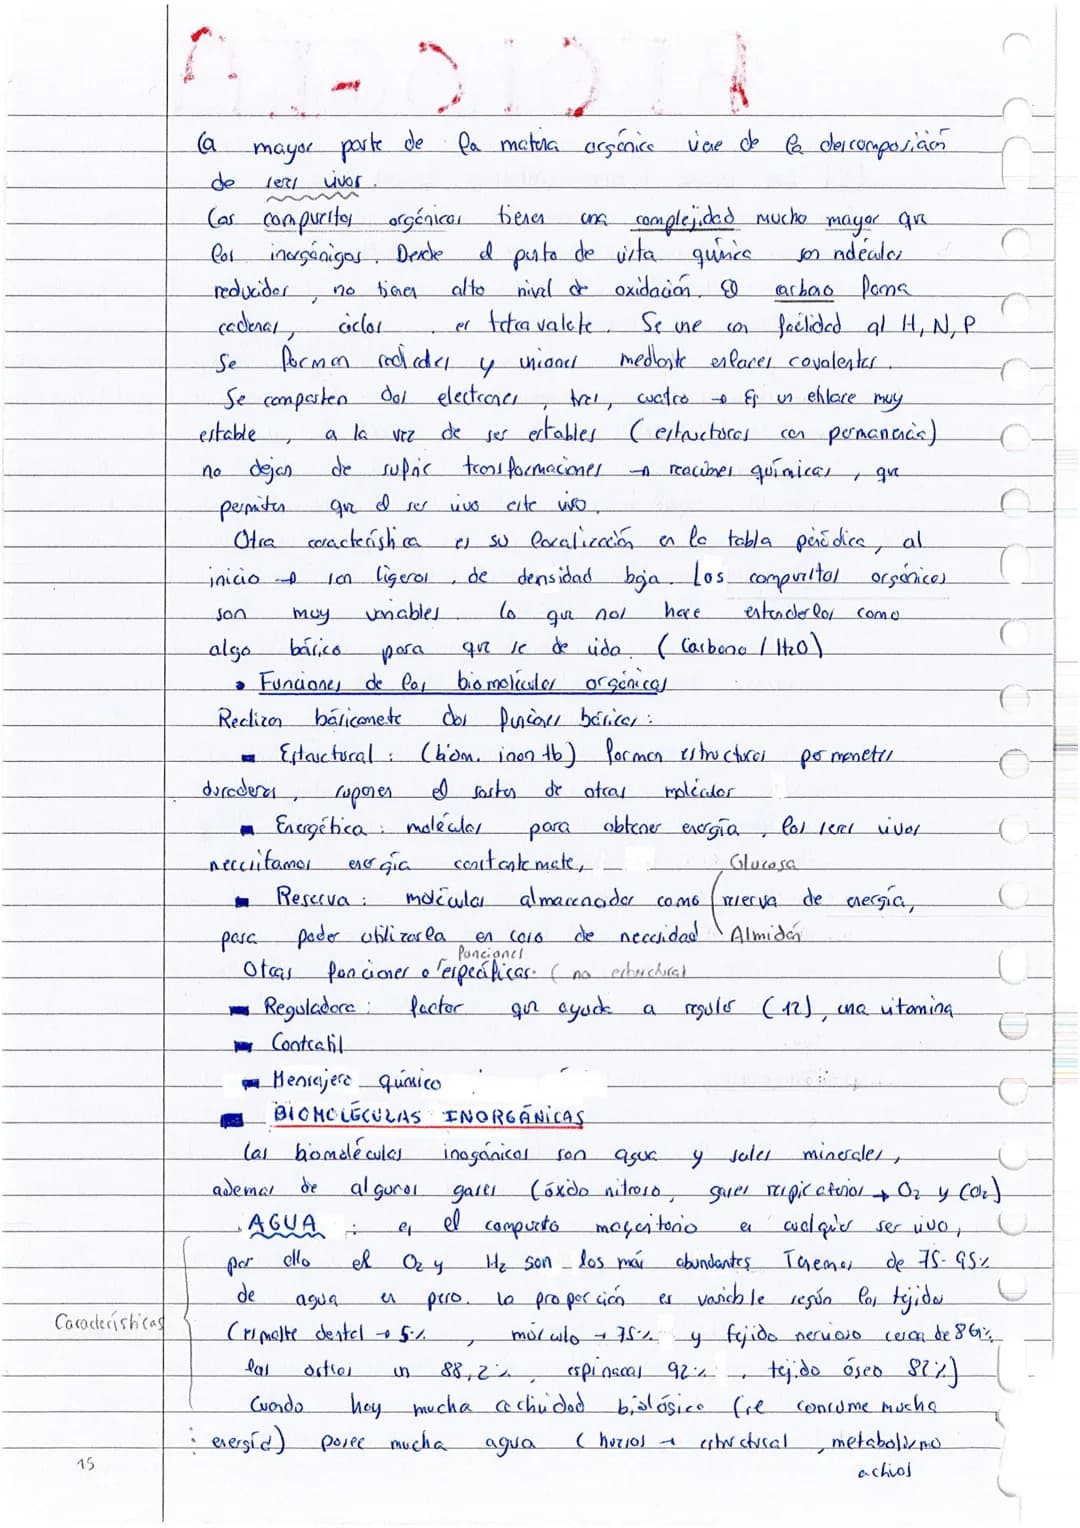 La mayor parte de la materia orgánica viene de la descomposición
de seres vivos.
Las compuestos orgánicos tienen una complejidad mucho mayor que
los inorgánigos. Desde el punto de vista química son moléculas
reducidas, no tienen alto nivel de oxidación. El carbono forma
cadenas, ciclos . es tetravalente. Se une con facilidad al H, N, P
Se forman radicales y uniones mediante enlaces covalentes.
Se comparten dos electrones, tres, cuatro → Es un enlace muy
estable, a la vez de ser estables (estructuras con permanencia)
no dejan de sufrir transformaciones → reacciones químicas, que
permiten que el ser vivo esté vivo.
Otra característica es su localización en la tabla périódica, al
inicio → son ligeros, de densidad baja. Los compuestos orgánicos
son muy variables. Lo que nos hace entenderlos como
algo básico para que se de vida. (Carbono / H2O)
• Funciones de las biomoléculas orgánicas
Realizan básicamente dos funciones básicas:
Estructural: (biom. inon tb) forman estructuras permanentes
duraderas, suponen el sosten de otras moléculas
Energética: moléculas para obtener energía, los seres vivos
necesitamos energía constantemate,
Glucosa
Reserva: moléculas almacenadas como reserva de energía,
para poder utilizarla en caso de necesidad Almidón
funciones
Otras funciones o específicas. (no estructural
Reguladora: factor que ayuda a regular (12), una vitamina
Contratil
Mensajero químico
BIOMOLÉCULAS INORGÁNICAS
Las biomoléculas inogánicas son agua y sales minerales,
ademas de algunos gases (óxido nitroso, gases respiratorios → O2 y CO2)
AGUA : es el compuesto mayoritario en cualquier ser vivo,
por ello el O2 y H2 son los más abundantes Tenemos de 75-95%
de agua en peso. La proporción es variable según los tejidos
Características
(esmalte dental → 5%, músculo → 75% y tejido nervioso cerca de 86%,
las ostras un 88,2%, espinacas 92%, tejido óseo 82%)
Cuando hay mucha actividad biológica (se consume mucha
energía) posee mucha agua (huesos → estructural, metabolismo
activos
15